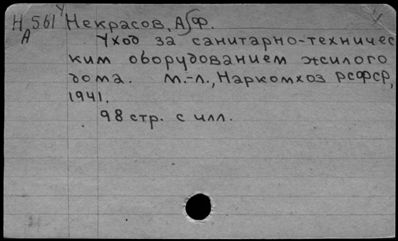 Н 561 Некрасов, А.Ф.
А Уход за санитарно-техничес
ким оборудованием жилого
дома. М.-Л., Наркомхоз РСФСР,
1941.
98 стр. с илл.